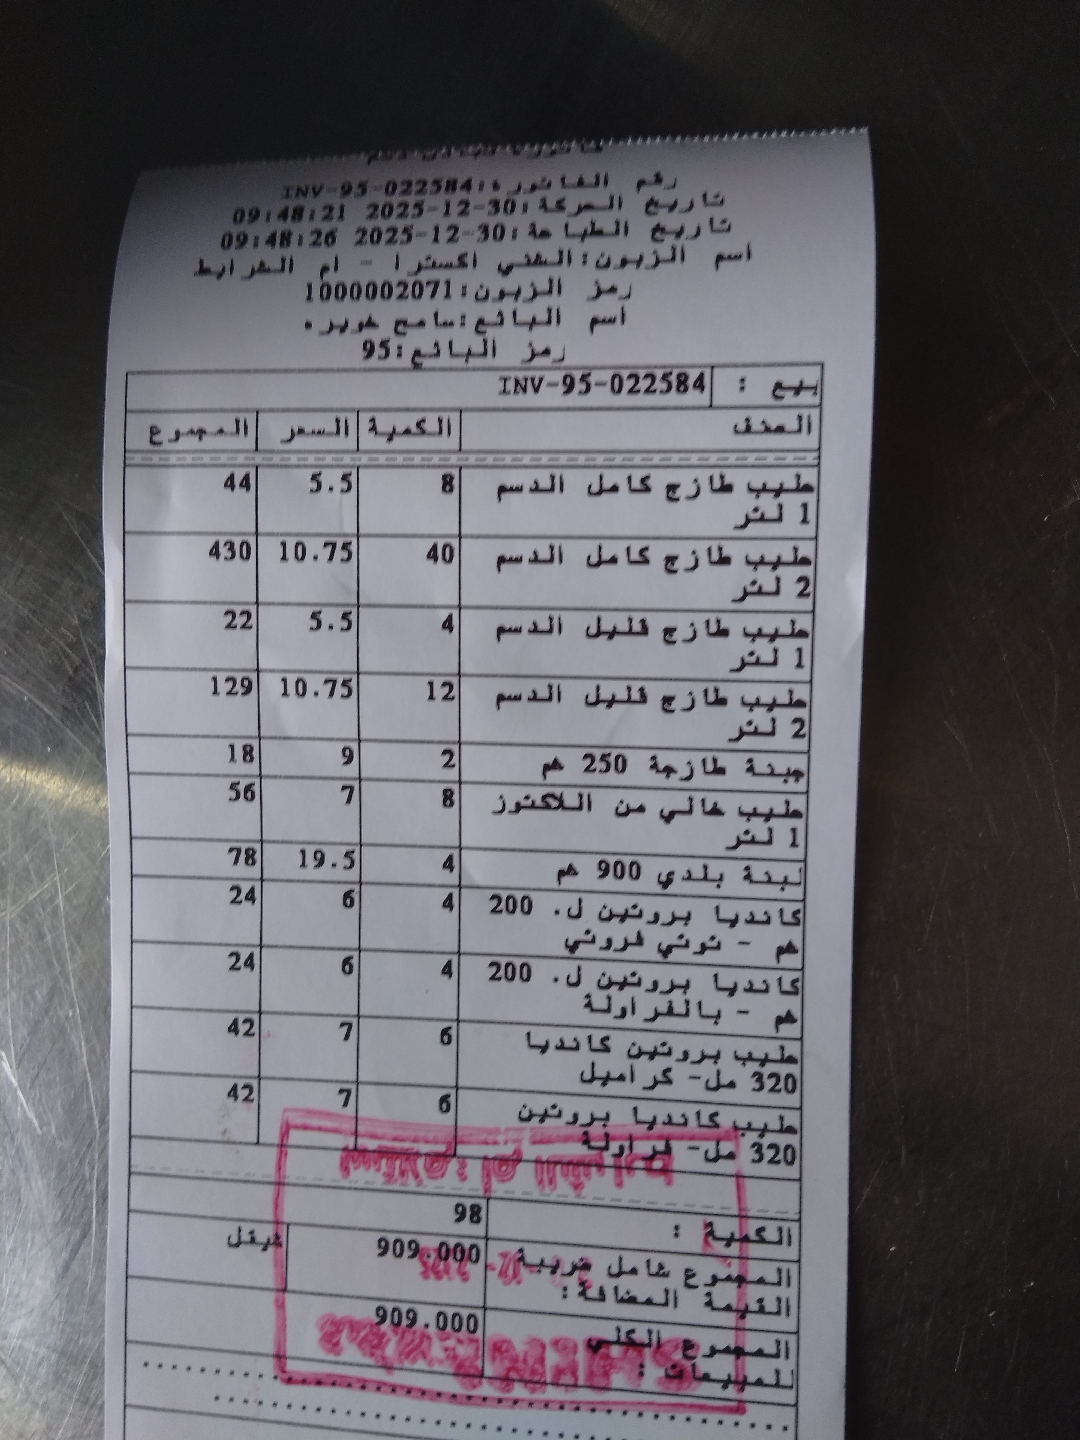 رقم الفاتورة:INV-95-022584
تاريخ الحركة:30-12-2025 09:48:21
تاريخ الطباعة:30-12-2025 09:48:26
اسم الزبون:الشني اكسترا - ام الشرايط
رمز الزبون:1000002071
اسم البائع:سامح
رمز البائع:95
بيع : INV-95-022584
الصنف الكمية السعر المجموع
حليب طازج كامل الدسم 8 5.5 44
1 لتر
حليب طازج كامل الدسم 40 10.75 430
2 لتر
حليب طازج قليل الدسم 4 5.5 22
1 لتر
حليب طازج قليل الدسم 12 10.75 129
2 لتر
جبنة طازجة 250 غم 2 9 18
حليب خالي من اللاكتوز 8 7 56
1 لتر
لبنة بلدي 900 غم 4 19.5 78
كانديا بروتين ل. 200 4 6 24
غم - توتي فروتي
كانديا بروتين ل. 200 4 6 24
غم - بالفراولة
حليب بروتين كانديا 6 7 42
320 مل- كراميل
حليب كانديا بروتين 6 7 42
320 مل- فراولة
الكمية : 98
المجموع شامل ضريبة 909.000 شيقل
القيمة المضافة:
المجموع الكلي 909.000
للمبيعات :